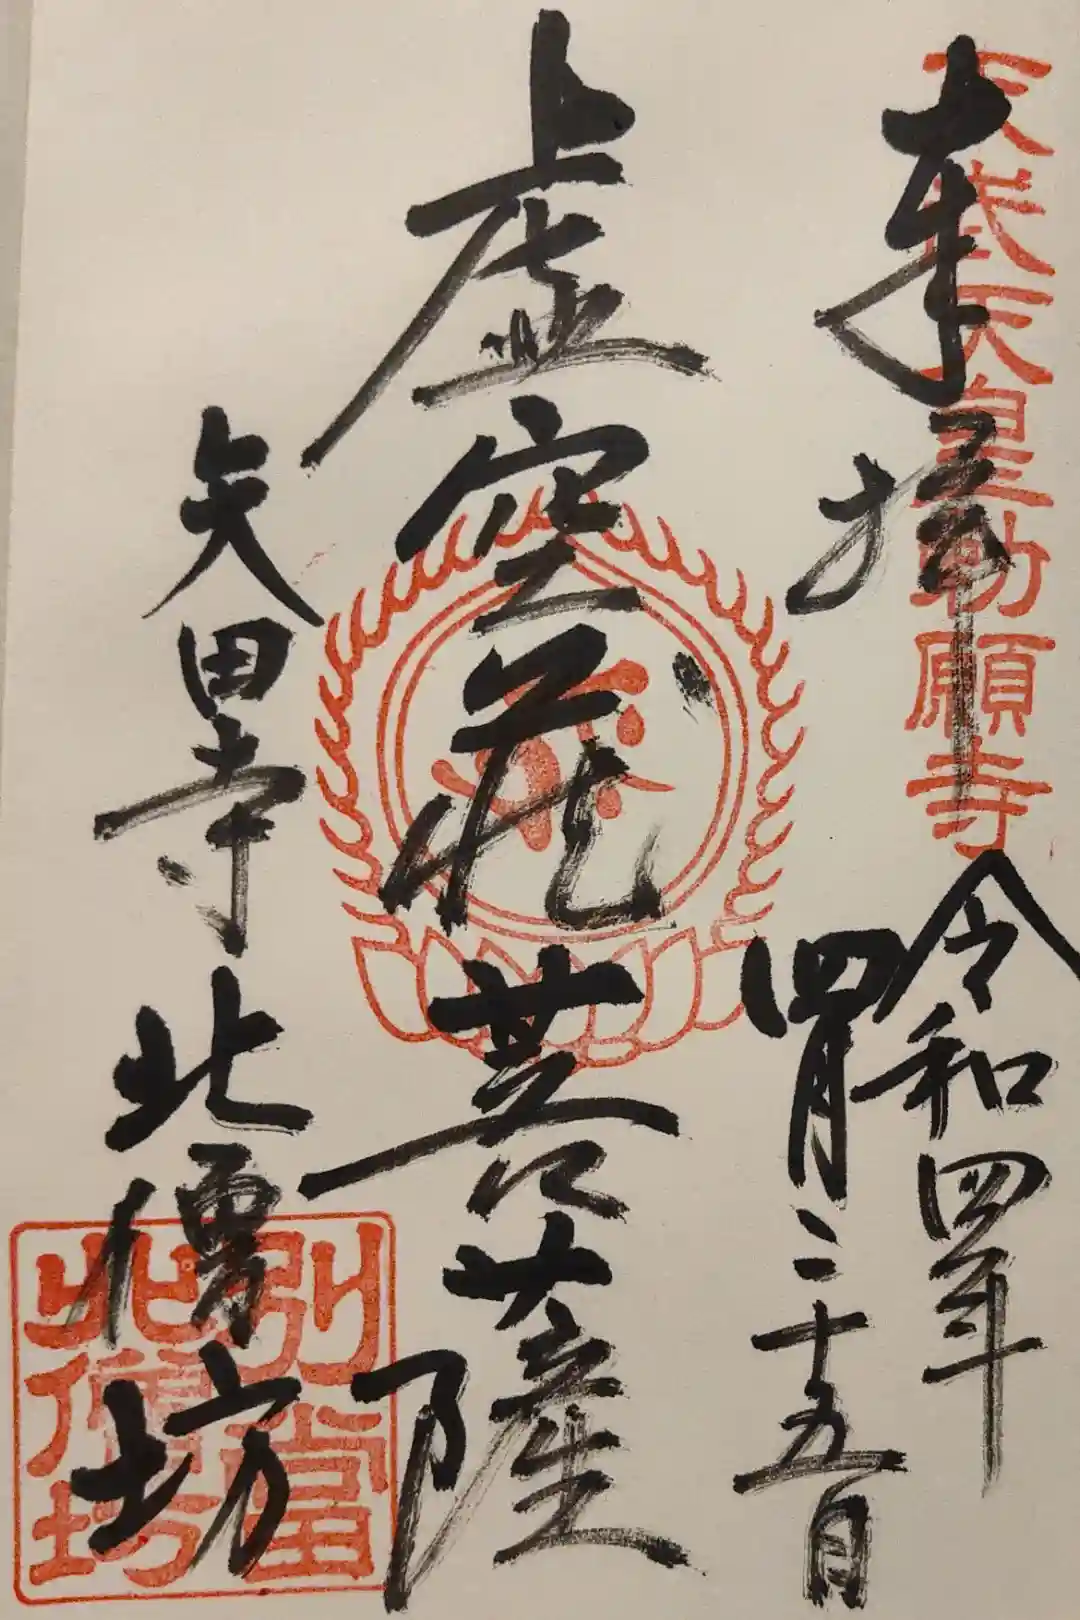 奉拝
天武天皇勅願寺
令和四年
四月二十五日
虚空蔵菩薩
矢田寺北僧坊
別当
北僧坊